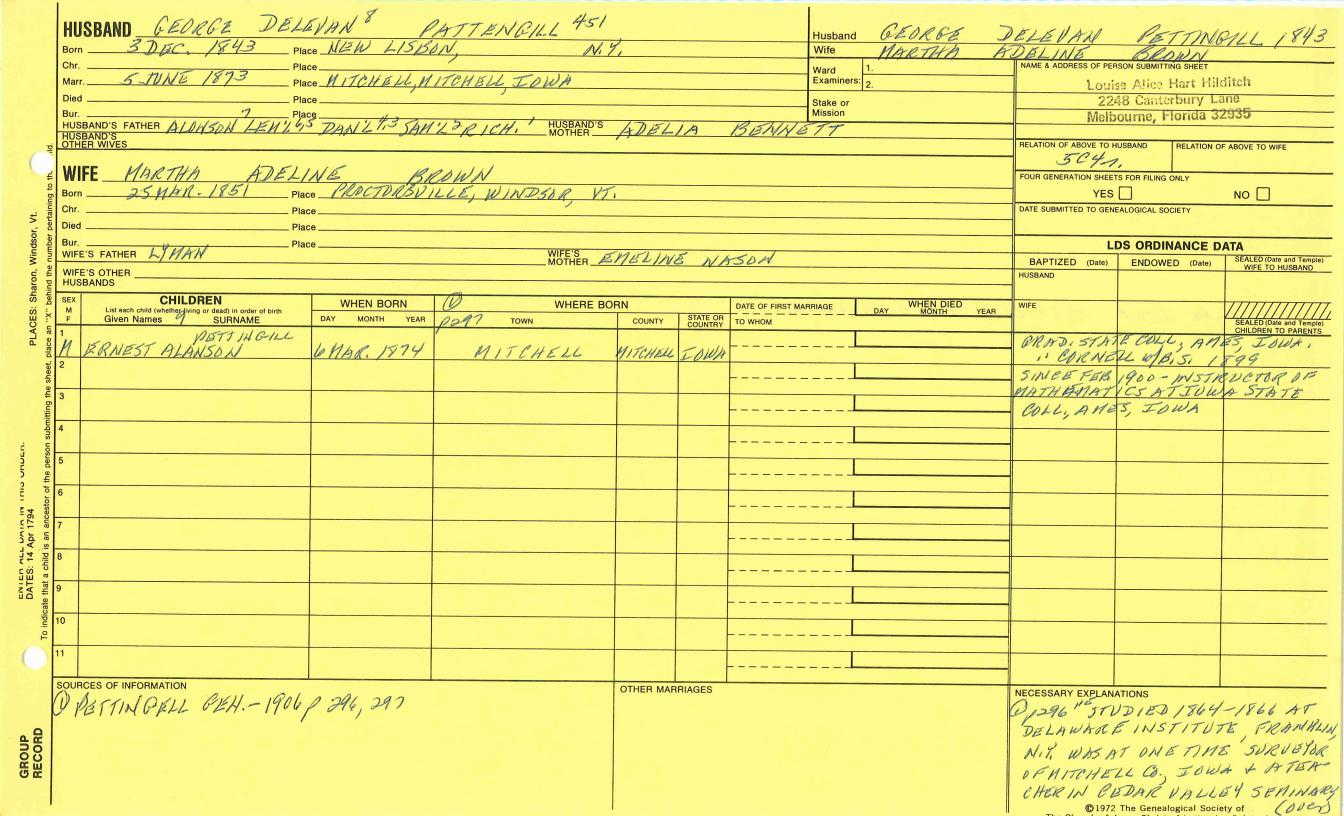 HUSBAND GEORGE DELEVAN 8 PATTENGILL 451
Born 3 DEC. 1843 Place NEW LISBON, N.Y.
Chr. Place
Marr. 5 JUNE 1873 Place MITCHELL, MITCHELL, IOWA
Died Place
Bur. Place
HUSBAND'S FATHER ALONSON 7 LEM'L 6,5 DAN'L 4,3 SAM'L 2 RICH. 1 HUSBAND'S MOTHER ADELIA BENNETT
HUSBAND'S OTHER WIVES
Husband GEORGE DELEVAN PETTINGILL 1843
Wife MARTHA ADELINE BROWN
Ward Examiners: 1.
2.
Stake or Mission
NAME & ADDRESS OF PERSON SUBMITTING SHEET
Louise Alice Hart Hilditch
2248 Canterbury Lane
Melbourne, Florida 32935
RELATION OF ABOVE TO HUSBAND RELATION OF ABOVE TO WIFE
5C4r.
FOUR GENERATION SHEETS FOR FILING ONLY
YES NO
DATE SUBMITTED TO GENEALOGICAL SOCIETY
WIFE MARTHA ADELINE BROWN
Born 25 MAR. 1851 Place PROCTORSVILLE, WINDSOR, VT.
Chr. Place
Died Place
Bur. Place
WIFE'S FATHER LYMAN WIFE'S MOTHER EMELINE NASON
WIFE'S OTHER HUSBANDS
LDS ORDINANCE DATA
BAPTIZED (Date) ENDOWED (Date) SEALED (Date and Temple) WIFE TO HUSBAND
HUSBAND
WIFE
SEALED (Date and Temple) CHILDREN TO PARENTS
SEX M F CHILDREN WHEN BORN ① WHERE BORN DATE OF FIRST MARRIAGE WHEN DIED
List each child (whether living or dead) in order of birth
Given Names 9 SURNAME DAY MONTH YEAR p297 TOWN COUNTY STATE OR COUNTRY TO WHOM DAY MONTH YEAR
1 PETTINGILL
M ERNEST ALANSON 6 MAR. 1874 MITCHELL MITCHELL IOWA
GRAD. STATE COLL, AMES, IOWA.
" CORNELL w/B.S. 1899
SINCE FEB 1900 - INSTRUCTOR OF
MATHEMATICS AT IOWA STATE
COLL, AMES, IOWA
2
3
4
5
6
7
8
9
10
11
SOURCES OF INFORMATION
① PETTINGELL GEN. - 1906 p 296, 297
OTHER MARRIAGES
NECESSARY EXPLANATIONS
① p296 "HE STUDIED 1864-1866 AT
DELAWARE INSTITUTE, FRANKLIN,
N.Y. WAS AT ONE TIME SURVEYOR
OF MITCHELL CO., IOWA & A TEA-
CHER IN CEDAR VALLEY SEMINARY
(OVER)
©1972 The Genealogical Society of
PLACES: Sharon, Windsor, Vt.
ENTER ALL DATA IN THIS ORDER.
DATES: 14 Apr 1794
To indicate that a child is an ancestor of the person submitting the sheet, place an "X" behind the number pertaining to
GROUP RECORD